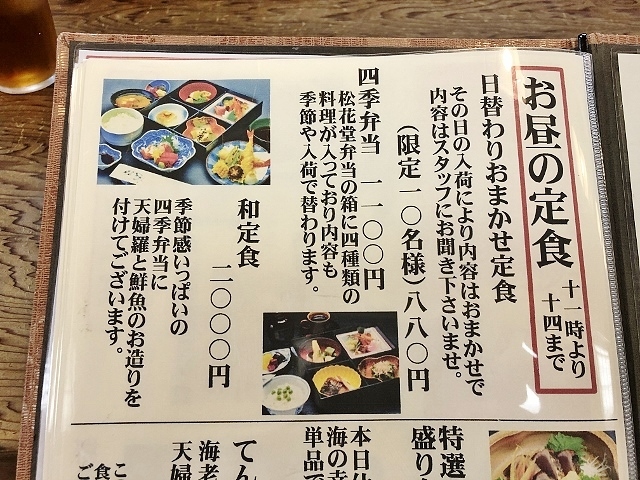 お昼の定食
十一時より
十四まで
日替わりおまかせ定食
その日の入荷により内容はおまかせで
内容はスタッフにお聞き下さいませ。
(限定一〇名様)八八〇円
四季弁当 一一〇〇円
松花堂弁当の箱に四種類の
料理が入っており内容も
季節や入荷で替わります。
和定食
二〇〇〇円
季節感いっぱいの
四季弁当に
天婦羅と鮮魚のお造りを
付けてございます。
特選
盛り
本日
海の幸
単品で
てん
海老
天婦
こ
食
ご